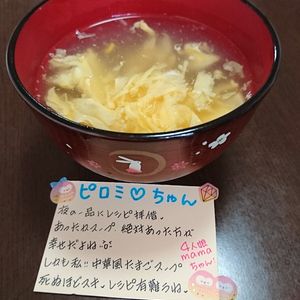 ピロミ♡ちゅん
夜の一品にレシピ拝借。
あったかスープ 絶対あった方が
幸せだよね
しかも私!!中華風たまごスープ
死ぬほどスキ。レシピ有難うね。
4人娘
mama
ちゃん